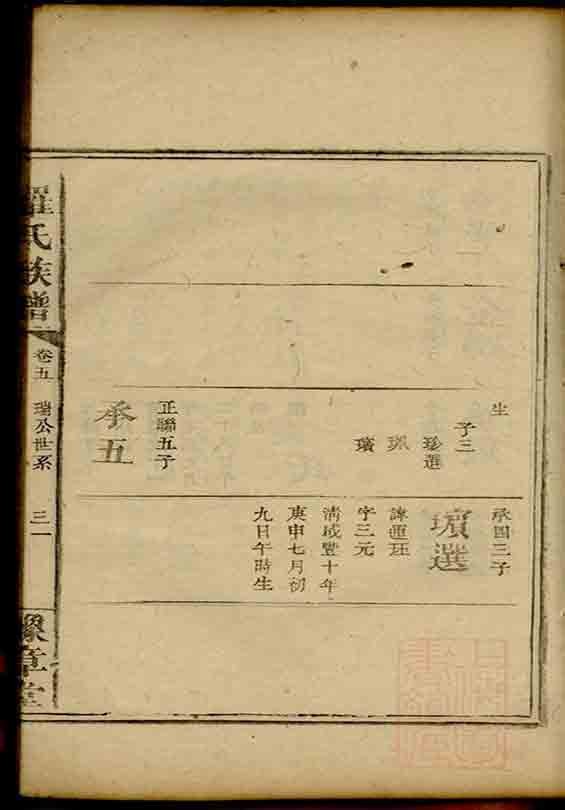 生
子三
珍選
珮
璸
正聯五子
承五
承國三子
璸選
諱運珏
字三元
清咸豐十年
庚申七月初
九日午時生
羅氏族譜
卷五
瑞公世系
三一
豫章堂